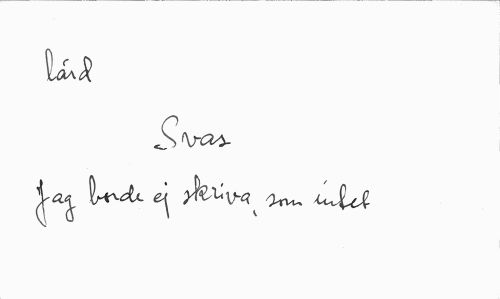 lärd
Svas
Jag borde ej skriva, som intet